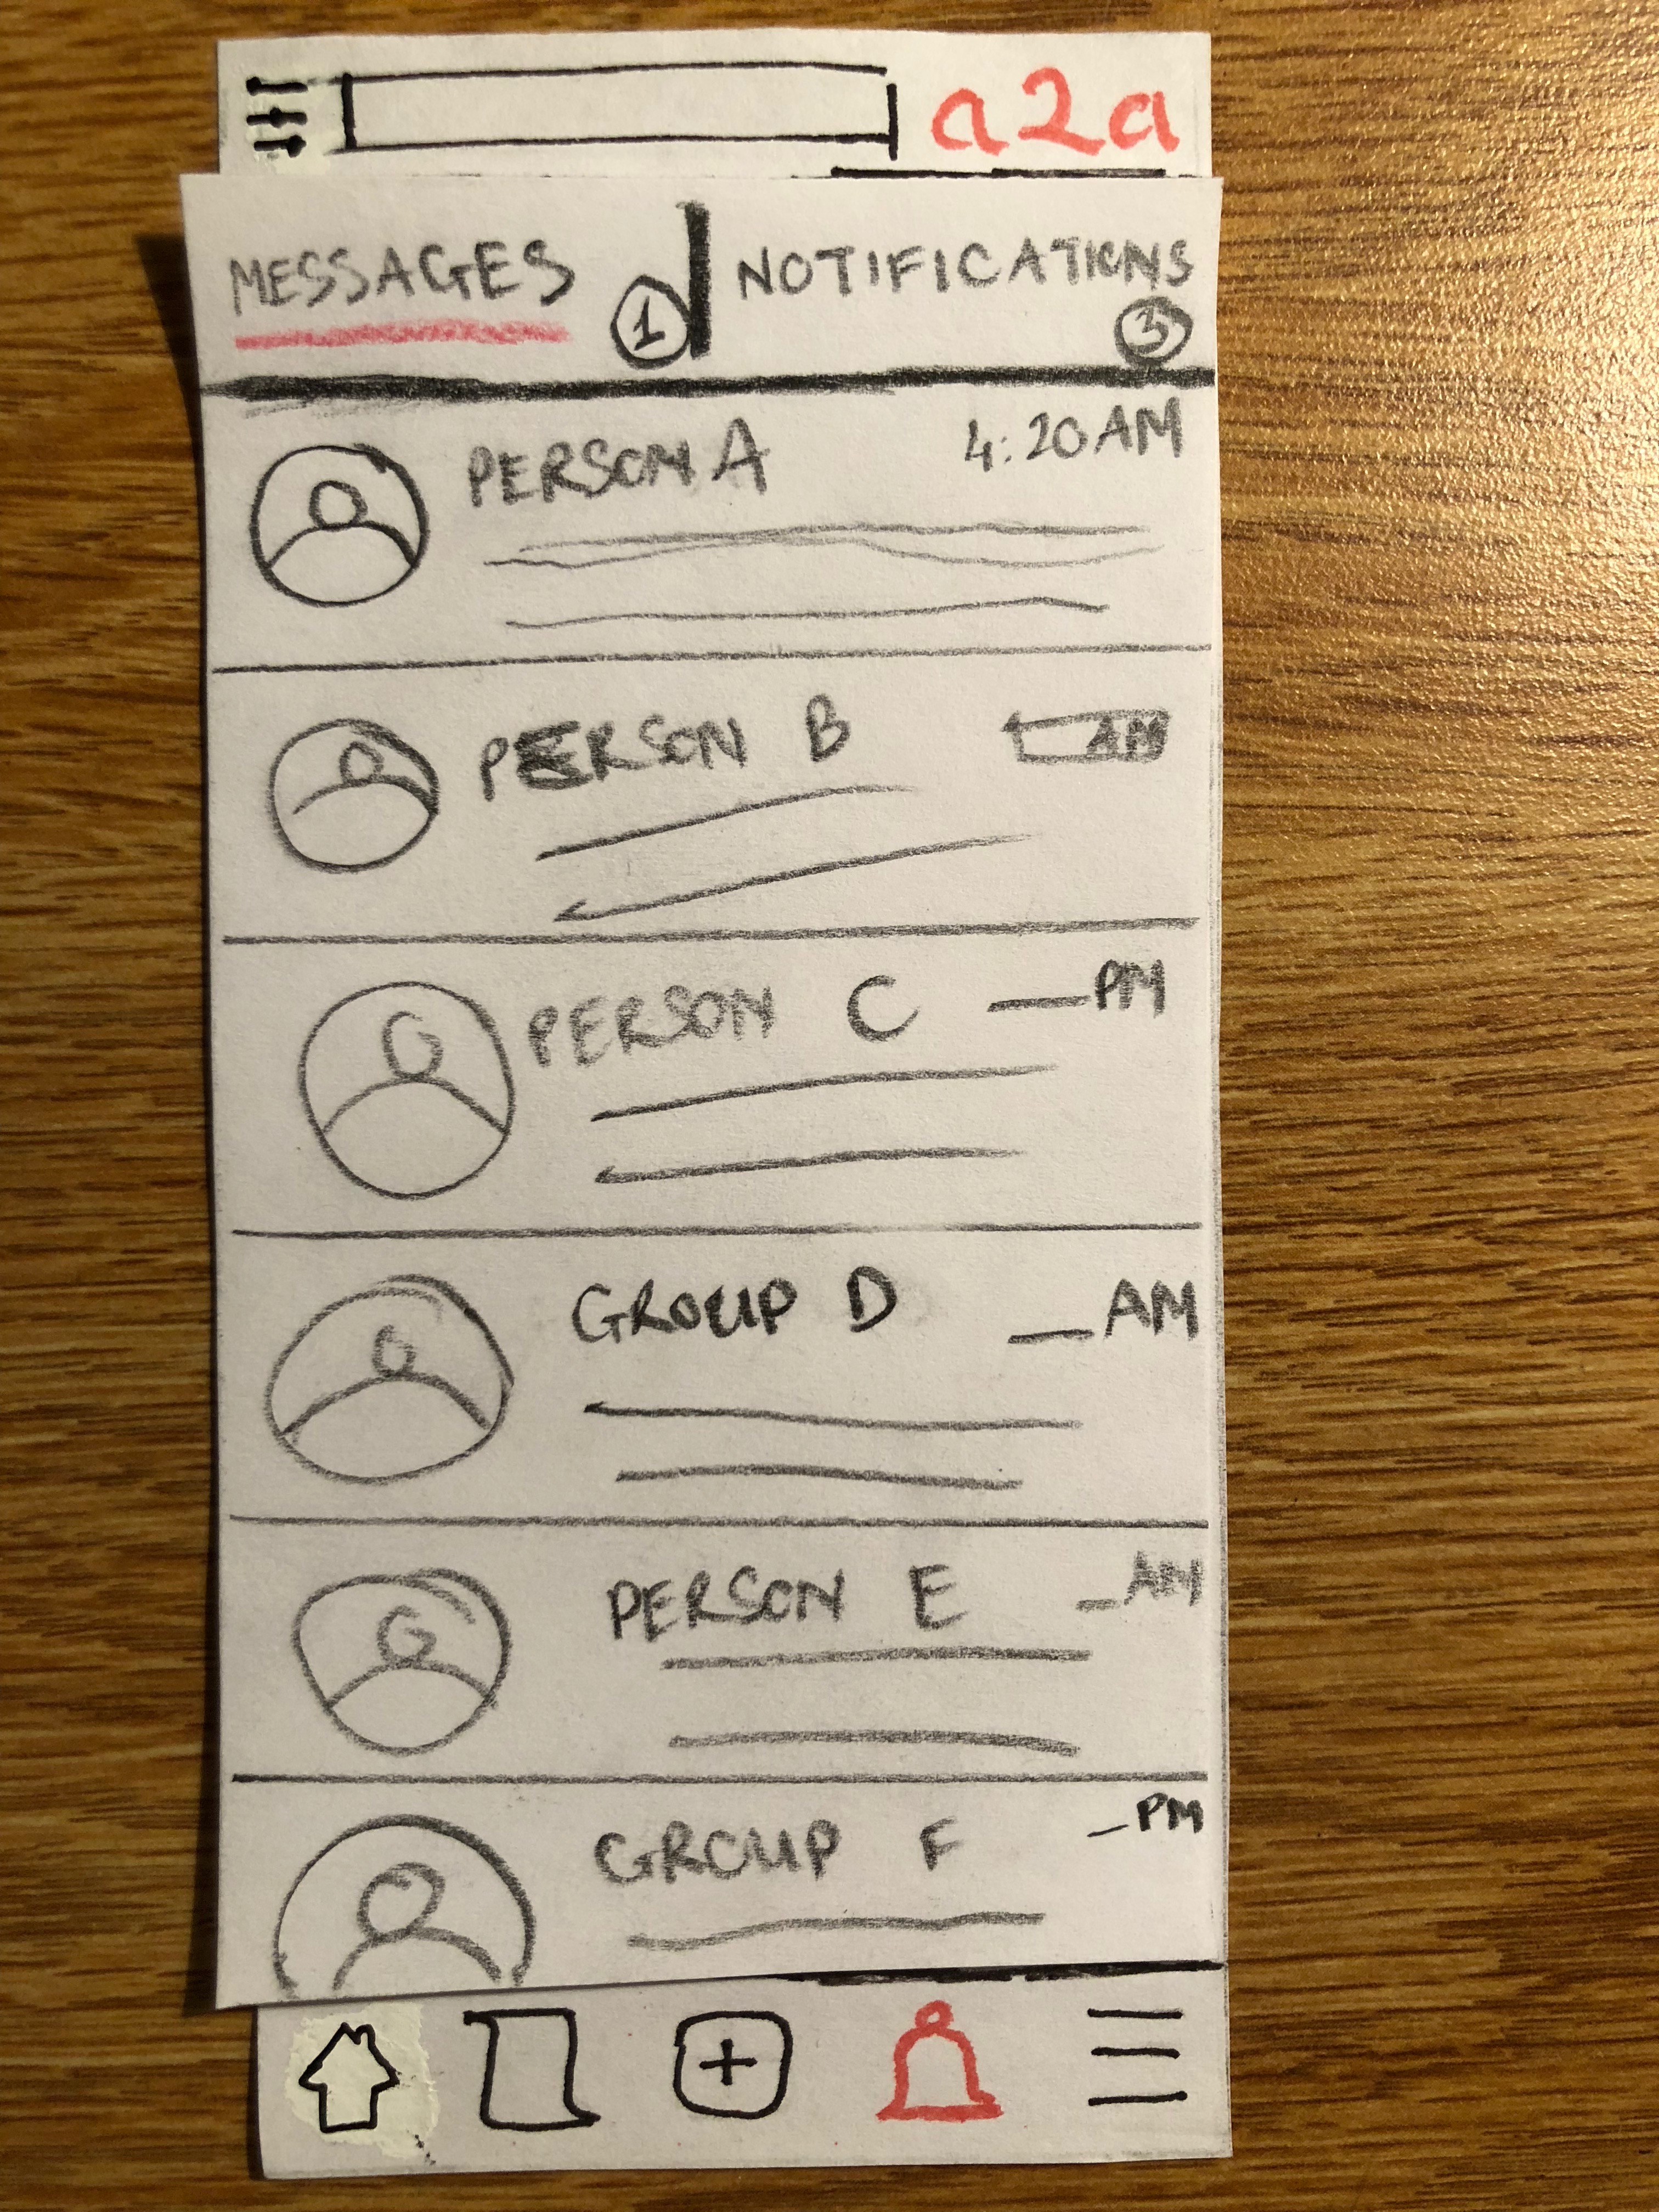 a2a
MESSAGES 1 NOTIFICATIONS 3
PERSON A 4:20 AM
PERSON B AM
PERSON C __ PM
GROUP D __ AM
PERSON E _ AM
GROUP F _ PM